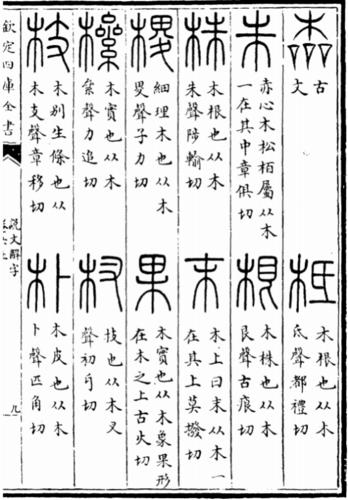 古
文
柢
木根也从木
氐聲都禮切
朱
赤心木松栢屬从木
一在其中章俱切
根
木株也从木
艮聲古痕切
株
木根也从木
朱聲陟輸切
末
木上曰末从木一
在其上莫撥切
㮨
細理木也从木
畟聲子力切
果
木實也从木象果形
在木之上古火切
樏
木實也从木
絫聲力追切
杈
枝也从木叉
聲初牙切
枝
木别生條也从木
支聲章移切
朴
木皮也从木
卜聲匹角切
欽定四庫全書
說文解字
卷六上
九